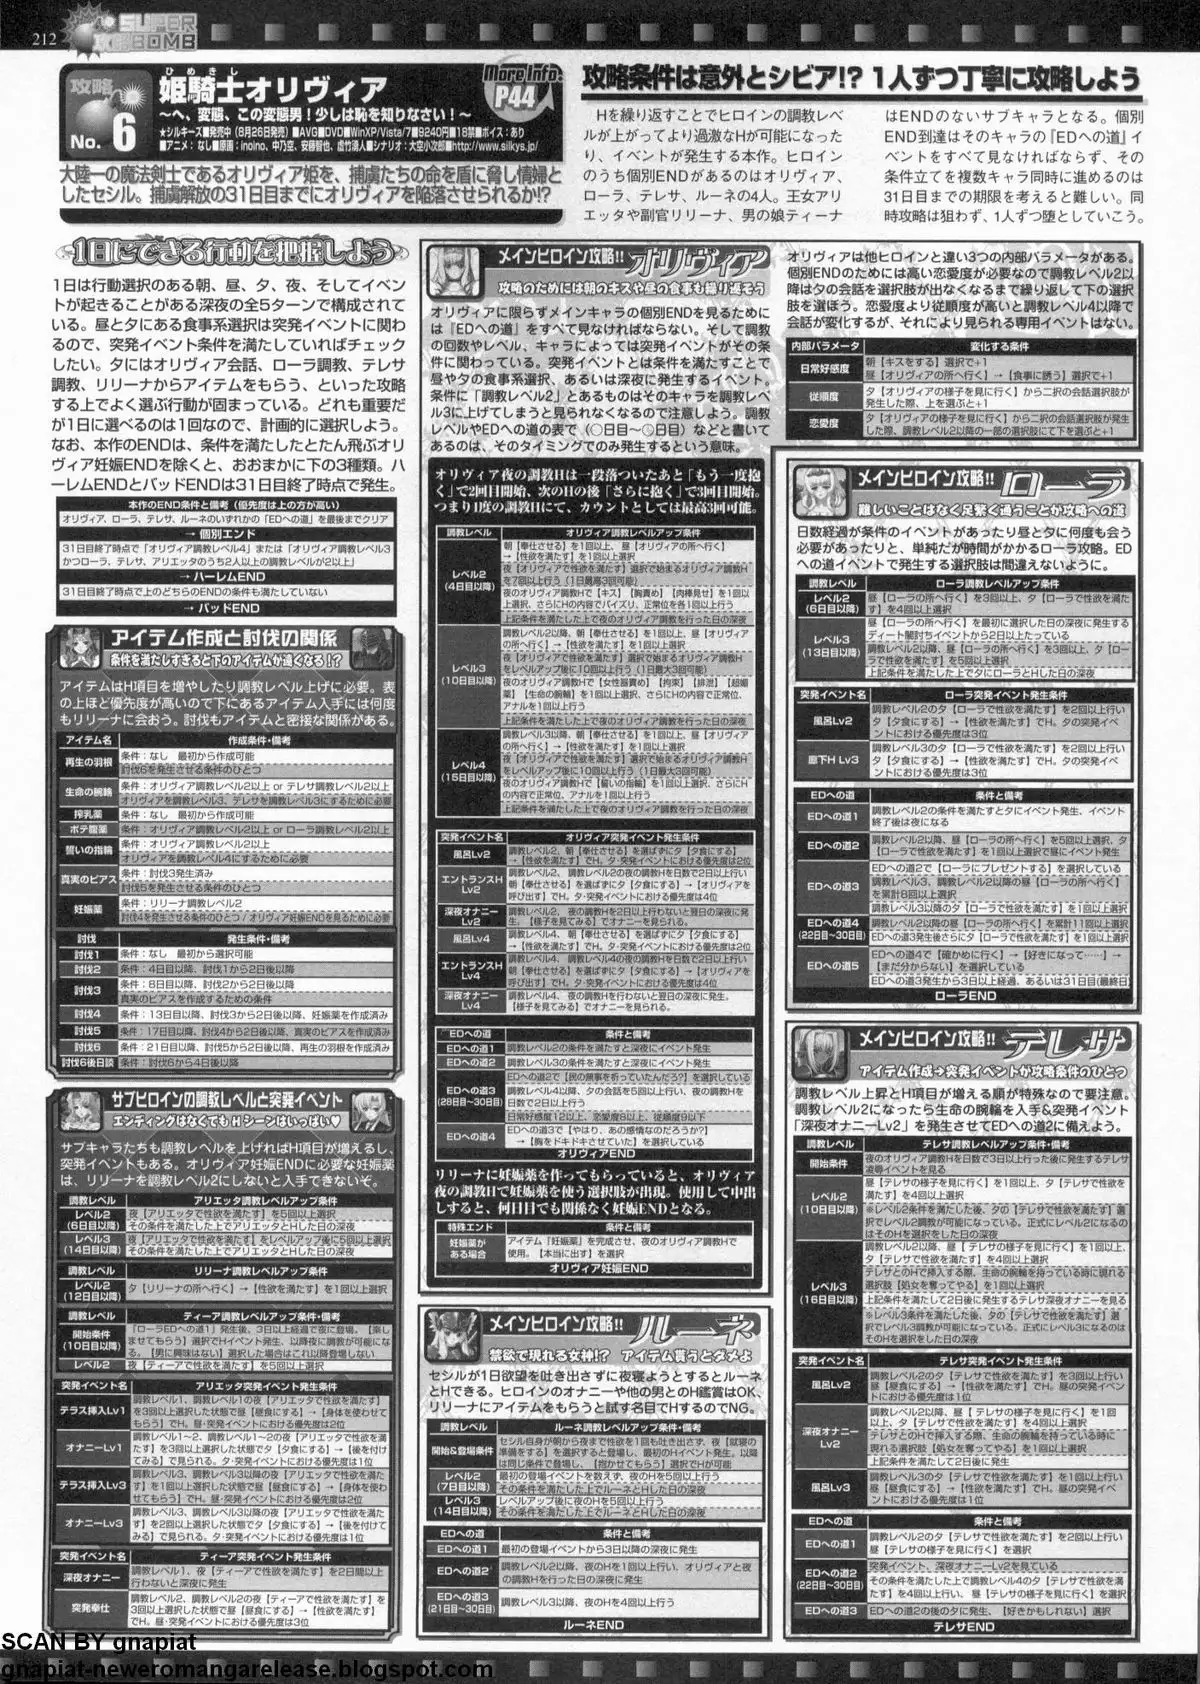 212
SUPER
攻略BOMB
攻略
No. 6
ひめきし
姫騎士オリヴィア
～へ、変態、この変態男！少しは恥を知りなさい！～
More Info.
P44
★シルキーズ■発売中（8月26日発売）■AVG■DVD■WinXP/Vista/7■9240円■18禁■ボイス：あり
■アニメ：なし■原画：inoino、中乃空、安藤智也、虚竹湧人■シナリオ：大空小次郎■http://www.silkys.jp/
大陸一の魔法剣士であるオリヴィア姫を、捕虜たちの命を盾に脅し情婦と
したセシル。捕虜解放の31日目までにオリヴィアを陥落させられるか!?
攻略条件は意外とシビア!? 1人ずつ丁寧に攻略しよう
Hを繰り返すことでヒロインの調教レベ
ルが上がってより過激なHが可能になった
り、イベントが発生する本作。ヒロイン
のうち個別ENDがあるのはオリヴィア、
ローラ、テレサ、ルーネの4人。王女アリ
エッタや副官リリーナ、男の娘ティーナ
はENDのないサブキャラとなる。個別
END到達はそのキャラの『EDへの道』イ
ベントをすべて見なければならず、その
条件立てを複数キャラ同時に進めるのは
31日目までの期限を考えると難しい。同
時攻略は狙わず、1人ずつ堕としていこう。
1日にできる行動を把握しよう
1日は行動選択のある朝、昼、夕、夜、そしてイベン
トが起きることがある深夜の全5ターンで構成されて
いる。昼と夕にある食事系選択は突発イベントに関わ
るので、突発イベント条件を満たしていればチェック
したい。夕にはオリヴィア会話、ローラ調教、テレサ
調教、リリーナからアイテムをもらう、といった攻略
する上でよく選ぶ行動が固まっている。どれも重要だ
が1日に選べるのは1回なので、計画的に選択しよう。
なお、本作のENDは、条件を満たしたとたん飛ぶオリ
ヴィア妊娠ENDを除くと、おおまかに下の3種類。ハ
ーレムENDとバッドENDは31日目終了時点で発生。
本作のEND条件と備考（優先度は上の方が高い）
オリヴィア、ローラ、テレサ、ルーネのいずれかの「EDへの道」を最後までクリア
→ 個別エンド
31日目終了時点で「オリヴィア調教レベル4」または「オリヴィア調教レベル3
かつローラ、テレサ、アリエッタのうち2人以上の調教レベルが2以上」
→ ハーレムEND
31日目終了時点で上のどちらのENDの条件も満たしていない
→ バッドEND
アイテム作成と討伐の関係
条件を満たしすぎると下のアイテムが遠くなる!?
アイテムはH項目を増やしたり調教レベル上げに必要。表
の上ほど優先度が高いので下にあるアイテム入手には何度
もリリーナに会おう。討伐もアイテムと密接な関係がある。
アイテム名 作成条件・備考
再生の羽根 条件：なし 最初から作成可能
討伐6を発生させる条件のひとつ
生命の腕輪 条件：オリヴィア調教レベル2以上 or テレサ調教レベル2以上
オリヴィアを調教レベル3、テレサを調教レベル3にするために必要
搾乳薬 条件：なし 最初から作成可能
ボテ腹薬 条件：オリヴィア調教レベル2以上 or ローラ調教レベル2以上
誓いの指輪 条件：オリヴィア調教レベル2以上
オリヴィアを調教レベル4にするために必要
真実のピアス 条件：討伐3発生済み
討伐5を発生させる条件のひとつ
妊娠薬 条件：リリーナ調教レベル2
討伐4を発生させる条件のひとつ / オリヴィア妊娠ENDを見るために必要
討伐 発生条件・備考
討伐1 条件：なし 最初から選択可能
討伐2 条件：4日目以降、討伐1から2日後以降
討伐3 条件：8日目以降、討伐2から2日後以降
真実のピアスを作成するための条件
討伐4 条件：13日目以降、討伐3から2日後以降、妊娠薬を作成済み
討伐5 条件：17日目以降、討伐4から2日後以降、真実のピアスを作成済み
討伐6 条件：21日目以降、討伐5から2日後以降、再生の羽根を作成済み
討伐6後日談 条件：討伐6から4日後以降
サブヒロインの調教レベルと突発イベント
エンディングはなくてもHシーンはいっぱい♥
サブキャラたちも調教レベルを上げればH項目が増えるし、
突発イベントもある。オリヴィア妊娠ENDに必要な妊娠薬
は、リリーナを調教レベル2にしないと入手できないぞ。
調教レベル アリエッタ調教レベルアップ条件
レベル2
(6日目以降)
夜【アリエッタで性欲を満たす】を5回以上選択
その条件を満たした上でアリエッタとHした日の深夜
レベル3
(14日目以降)
夜【アリエッタで性欲を満たす】をレベルアップ後に5回以上選択
その条件を満たした上でアリエッタとHした日の深夜
調教レベル リリーナ調教レベルアップ条件
レベル2
(12日目以降)
夕【リリーナの所へ行く】→【性欲を満たす】を1回以上選択
調教レベル ティーア調教レベルアップ条件・備考
開始条件
(10日目以降)
「ローラEDへの道1」発生後、3日以上経過で夜に登場。【楽し
ませてもらう】選択でHイベント発生、以降夜に調教が可能にな
る。【男に興味はない】選択した場合はこれ以降登場しない
レベル2 夜【ティーアで性欲を満たす】を5回以上選択
突発イベント名 アリエッタ突発イベント発生条件
テラス挿入Lv1 調教レベル1、調教レベル1の夜【アリエッタで性欲を満たす】
を3回以上選択した状態で昼【昼食にする】→【身体を使わせて
もらう】でH。昼・突発イベントにおける優先度は2位
オナニーLv1 調教レベル1～2、調教レベル1～2の夜【アリエッタで性欲を満た
す】を3回以上選択した状態で夕【夕食にする】→【後を付け
てみる】で見られる。夕・突発イベントにおける優先度は1位
テラス挿入Lv3 調教レベル3、調教レベル3以降の夜【アリエッタで性欲を満た
す】を1回以上選択した状態で昼【昼食にする】→【身体を使わ
せてもらう】でH。昼・突発イベントにおける優先度は2位
オナニーLv3 調教レベル3、調教レベル3以降の夜【アリエッタで性欲を満た
す】を2回以上選択した状態で夕【夕食にする】→【後を付けて
みる】で見られる。夕・突発イベントにおける優先度は1位
突発イベント名 ティーア突発イベント発生条件
深夜オナニー 調教レベル1、夜【ティーアで性欲を満たす】を2日間以上
行わないと深夜に発生
突発奉仕 調教レベル2、調教レベル2の夜【ティーアで性欲を満たす】を
3回以上選択した状態で昼【昼食にする】→【性欲を満たす】
でH。昼・突発イベントにおける優先度は3位
メインヒロイン攻略!! オリヴィア
攻略のためには朝のキスや昼の食事も繰り返そう
オリヴィアに限らずメインキャラの個別ENDを見るために
は『EDへの道』をすべて見なければならない。そして調教
の回数やレベル、キャラによっては突発イベントがその条
件に関わっている。突発イベントとは条件を満たすことで
昼や夕の食事系選択、あるいは深夜に発生するイベント。
条件に「調教レベル2」とあるものはそのキャラを調教レベ
ル3に上げてしまうと見られなくなるので注意しよう。調教
レベルやEDへの道の表で（○日目～○日目）などと書いて
あるのは、そのタイミングでのみ発生するという意味。
オリヴィアは他ヒロインと違い3つの内部パラメータがある。
個別ENDのためには高い恋愛度が必要なので調教レベル2以
降は夕の会話を選択肢が出なくなるまで繰り返して下の選択
肢を選ぼう。恋愛度より従順度が高いと調教レベル4以降で
会話が変化するが、それにより見られる専用イベントはない。
内部パラメータ 変化する条件
日常好感度 朝【キスをする】選択で+1
昼【オリヴィアの所へ行く】→【食事に誘う】選択で+1
従順度 夕【オリヴィアの様子を見に行く】から二択の会話選択肢が
発生した際、上を選ぶと+1
恋愛度 夕【オリヴィアの様子を見に行く】から二択の会話選択肢が発生
した際、調教レベル2以降の一部の選択肢にて下を選ぶと+1
オリヴィア夜の調教Hは一段落ついたあと「もう一度抱
く」で2回目開始、次のHの後「さらに抱く」で3回目開始。
つまり1度の調教Hにて、カウントとしては最高3回可能。
調教レベル オリヴィア調教レベルアップ条件
レベル2
(4日目以降)
朝【奉仕させる】を1回以上、昼【オリヴィアの所へ行く】
→【性欲を満たす】を1回以上選択
夜【オリヴィアで性欲を満たす】選択で始まるオリヴィア調教H
を7回以上行う（1日最高3回可能）
夜のオリヴィア調教Hで【キス】【胸責め】【肉棒見せ】を1回以
上選択、さらにHの内容でパイズリ、正常位を各1回以上行う
上記条件を満たした上で夜のオリヴィア調教を行った日の深夜
レベル3
(10日目以降)
調教レベル2以降、朝【奉仕させる】を1回以上、昼【オリヴィア
の所へ行く】→【性欲を満たす】を1回以上選択
夜【オリヴィアで性欲を満たす】選択で始まるオリヴィア調教H
をレベルアップ後に10回以上行う（1日最大3回可能）
夜のオリヴィア調教Hで【女性器責め】【拘束】【排泄】【超媚
薬】【生命の腕輪】を1回以上選択、さらにHの内容で正常位、
アナルを1回以上行う
上記条件を満たした上で夜のオリヴィア調教を行った日の深夜
レベル4
(15日目以降)
調教レベル3以降、朝【奉仕させる】を1回以上、昼【オリヴィア
の所へ行く】→【性欲を満たす】を1回以上選択
夜【オリヴィアで性欲を満たす】選択で始まるオリヴィア調教H
をレベルアップ後に10回以上行う（1日最大3回可能）
夜のオリヴィア調教Hで【誓いの指輪】を1回以上選択、さらにH
の内容で正常位、アナルを1回以上行う
上記条件を満たした上で夜のオリヴィア調教を行った日の深夜
突発イベント名 オリヴィア突発イベント発生条件
風呂Lv2 調教レベル2、朝【奉仕させる】を選ばずに夕【夕食にする】
→【性欲を満たす】でH。夕・突発イベントにおける優先度は2位
エントランスH
Lv2
調教レベル2、調教レベル2の夜の調教Hを日数で2日以上行い
朝【奉仕させる】を選ばずに夕【夕食にする】→【オリヴィアを
呼び出す】でH。夕・突発イベントにおける優先度は4位
深夜オナニー
Lv2
調教レベル2、夜の調教Hを2日以上行わないと翌日の深夜に発
生。【様子を見てみる】でオナニーを見られる。
風呂Lv4 調教レベル4、朝【奉仕させる】を選ばずに夕【夕食にする】
→【性欲を満たす】でH。夕・突発イベントにおける優先度は2位
エントランスH
Lv4
調教レベル4、調教レベル4の夜の調教Hを日数で2日以上行い
朝【奉仕させる】を選ばずに夕【夕食にする】→【オリヴィアを
呼び出す】でH。夕・突発イベントにおける優先度は4位
深夜オナニー
Lv4
調教レベル4、夜の調教Hを行わないと翌日の深夜に発生。
【様子を見てみる】でオナニーを見られる。
EDへの道 条件と備考
EDへの道1 調教レベル2の条件を満たすと深夜にイベント発生
EDへの道2 調教レベル3の条件を満たすと深夜にイベント発生
EDへの道3
(28日目～30日目)
EDへの道2で【民の無事を祈っていたんだろ?】を選択している
調教レベル4以降、夕の会話を5回以上行い、夜の調教Hを
日数で2日以上行う
日常好感度12以上、恋愛度8以上、従順度9以下
EDへの道4 EDへの道3で【やはり、あの感情なのだろうか?】
→【胸をドキドキさせていた】を選択している
オリヴィアEND
リリーナに妊娠薬を作ってもらっていると、オリヴィア
夜の調教Hで妊娠薬を使う選択肢が出現。使用して中出
しすると、何日目でも関係なく妊娠ENDとなる。
特殊エンド 条件と備考
妊娠薬が
ある場合
アイテム「妊娠薬」を完成させ、夜のオリヴィア調教Hで
使用。【本当に出す】を選択
オリヴィア妊娠END
メインヒロイン攻略!! ルーネ
禁欲で現れる女神!? アイテム貰うとダメよ
セシルが1日欲望を吐き出さずに夜寝ようとするとルーネ
とHできる。ヒロインのオナニーや他の男とのH鑑賞はOK。
リリーナにアイテムをもらうと試す名目でHするのでNG。
調教レベル ルーネ調教レベルアップ条件・備考
開始&登場条件 セシル自身が朝から夜まで性欲を1回も吐き出さず、夜【就寝の
準備をする】を選択すると登場し、最初のHイベント発生。以降
は同じ条件で登場し、【抱かせてもらう】選択でHが可能
レベル2
(7日目以降)
最初の登場イベントを数えず、夜のHを5回以上行う
その条件を満たした上でルーネとHした日の深夜
レベル3
(14日目以降)
レベルアップ後に夜のHを5回以上行う
その条件を満たした上でルーネとHした日の深夜
EDへの道 条件と備考
EDへの道1 最初の登場イベントから3日以降の深夜に発生
EDへの道2 調教レベル2以降、夜のHを1回以上行い、オリヴィアと夜
の調教Hを行った日の深夜に発生
EDへの道3
(21日目～30日目)
調教レベル3以降、夜のHを4回以上行う
ルーネEND
メインヒロイン攻略!! ローラ
難しいことはなく足繁く通うことが攻略への道
日数経過が条件のイベントがあったり昼と夕に何度も会う
必要があったりと、単純だが時間がかかるローラ攻略。ED
への道イベントで発生する選択肢は間違えないように。
調教レベル ローラ調教レベルアップ条件
レベル2
(6日目以降)
昼【ローラの所へ行く】を3回以上、夕【ローラで性欲を満た
す】を4回以上選択
レベル3
(13日目以降)
昼【ローラの所へ行く】を最初に選択した日の深夜に発生する
ディート闇討ちイベントから2日以上たっている
調教レベル2以降、昼【ローラの所へ行く】を3回以上、夕【ロー
ラで性欲を満たす】を5回以上選択
上記条件を満たした上で夕にローラとHした日の深夜
突発イベント名 ローラ突発イベント発生条件
風呂Lv2 調教レベル2の夕【ローラで性欲を満たす】を2回以上行い
夕【夕食にする】→【性欲を満たす】でH。夕の突発イベ
ントにおける優先度は3位
廊下H Lv3 調教レベル3の夕【ローラで性欲を満たす】を2回以上行い
夕【夕食にする】→【性欲を満たす】でH。夕の突発イベ
ントにおける優先度は3位
EDへの道 条件と備考
EDへの道1 調教レベル2の条件を満たすと夕にイベント発生、イベント
終了後は夜になる
EDへの道2 調教レベル2以降、昼【ローラの所へ行く】を5回以上選択、夕
【ローラで性欲を満たす】を1回以上選択で昼にイベント発生
EDへの道3 EDへの道2で【ローラにプレゼントする】を選択している
調教レベル3、調教レベル2以降の昼【ローラの所へ行く】
を累計8回以上選択
調教レベル3以降の夕【ローラで性欲を満たす】を1回以上選択
EDへの道4
(22日目～30日目)
調教レベル2以降の昼【ローラの所へ行く】を累計11回以上選択
EDへの道3発生後さらに夕【ローラで性欲を満たす】を1回以上選択
EDへの道5 EDへの道4で【確かめに行く】→【好きになって……】→
【まだ分からない】を選択している
EDへの道3発生から3日以上経過、あるいは31日目(最終日)
ローラEND
メインヒロイン攻略!! テレサ
アイテム作成→突発イベントが攻略条件のひとつ
調教レベル上昇とH項目が増える順が特殊なので要注意。
調教レベル2になったら生命の腕輪を入手&突発イベント
「深夜オナニーLv2」を発生させてEDへの道2に備えよう。
調教レベル テレサ調教レベルアップ条件・備考
開始条件 夜のオリヴィア調教Hを日数で3日以上行った後に発生するテレサ
凌辱イベントを見る
レベル2
(10日目以降)
昼【テレサの様子を見に行く】を1回以上、夕【テレサで性欲を満
たす】を4回以上選択
※レベル2条件を満たした後、夕の【テレサで性欲を満たす】選
択でレベル2調教が可能になっている。正式にレベル2になるの
はそのHを選択をした日の深夜
レベル3
(16日目以降)
調教レベル2以降、昼【テレサの様子を見に行く】を1回以上、
夕【テレサで性欲を満たす】を4回以上選択
テレサとのHで挿入する際、生命の腕輪を持っている時に現れる
選択肢【処女を奪ってやる】を1回以上選択
上記条件を満たして2日後に発生するテレサ深夜オナニーを見る
※レベル3条件を満たした後、夕の【テレサで性欲を満たす】選
択でレベル3調教が可能になっている。正式にレベル3になるのは
そのHを選択をした日の深夜
突発イベント名 テレサ突発イベント発生条件
風呂Lv2 調教レベル2の夕【テレサで性欲を満たす】を3回以上行い
昼【昼食にする】→【性欲を満たす】でH。昼の突発イベン
トにおける優先度は1位
深夜オナニー
Lv2
調教レベル2以降、昼【テレサの様子を見に行く】を1回
以上、夕【テレサで性欲を満たす】を4回以上選択
テレサとのHで挿入する際、生命の腕輪を持っている時に
現れる選択肢【処女を奪ってやる】を1回以上選択
上記条件を満たして2日後に発生
風呂Lv3 調教レベル3の夕【テレサで性欲を満たす】を1回以上行い
昼【昼食にする】→【性欲を満たす】でH。昼の突発イベ
ントにおける優先度は1位
EDへの道 条件と備考
EDへの道1 調教レベル2の夕【テレサで性欲を満たす】を2回以上行い昼
【テレサの様子を見に行く】を選択
EDへの道2
(22日目～30日目)
突発イベント、深夜オナニーLv2を見ている
その条件を満たした上で調教レベル4の夕【テレサで性欲を満た
す】を4回以上行い、昼【テレサの様子を見に行く】を選択
EDへの道3 EDへの道2の後の夕に発生、【好きかもしれない】選択
テレサEND
SCAN BY gnapiat
gnapiat-neweromangarelease.blogspot.com